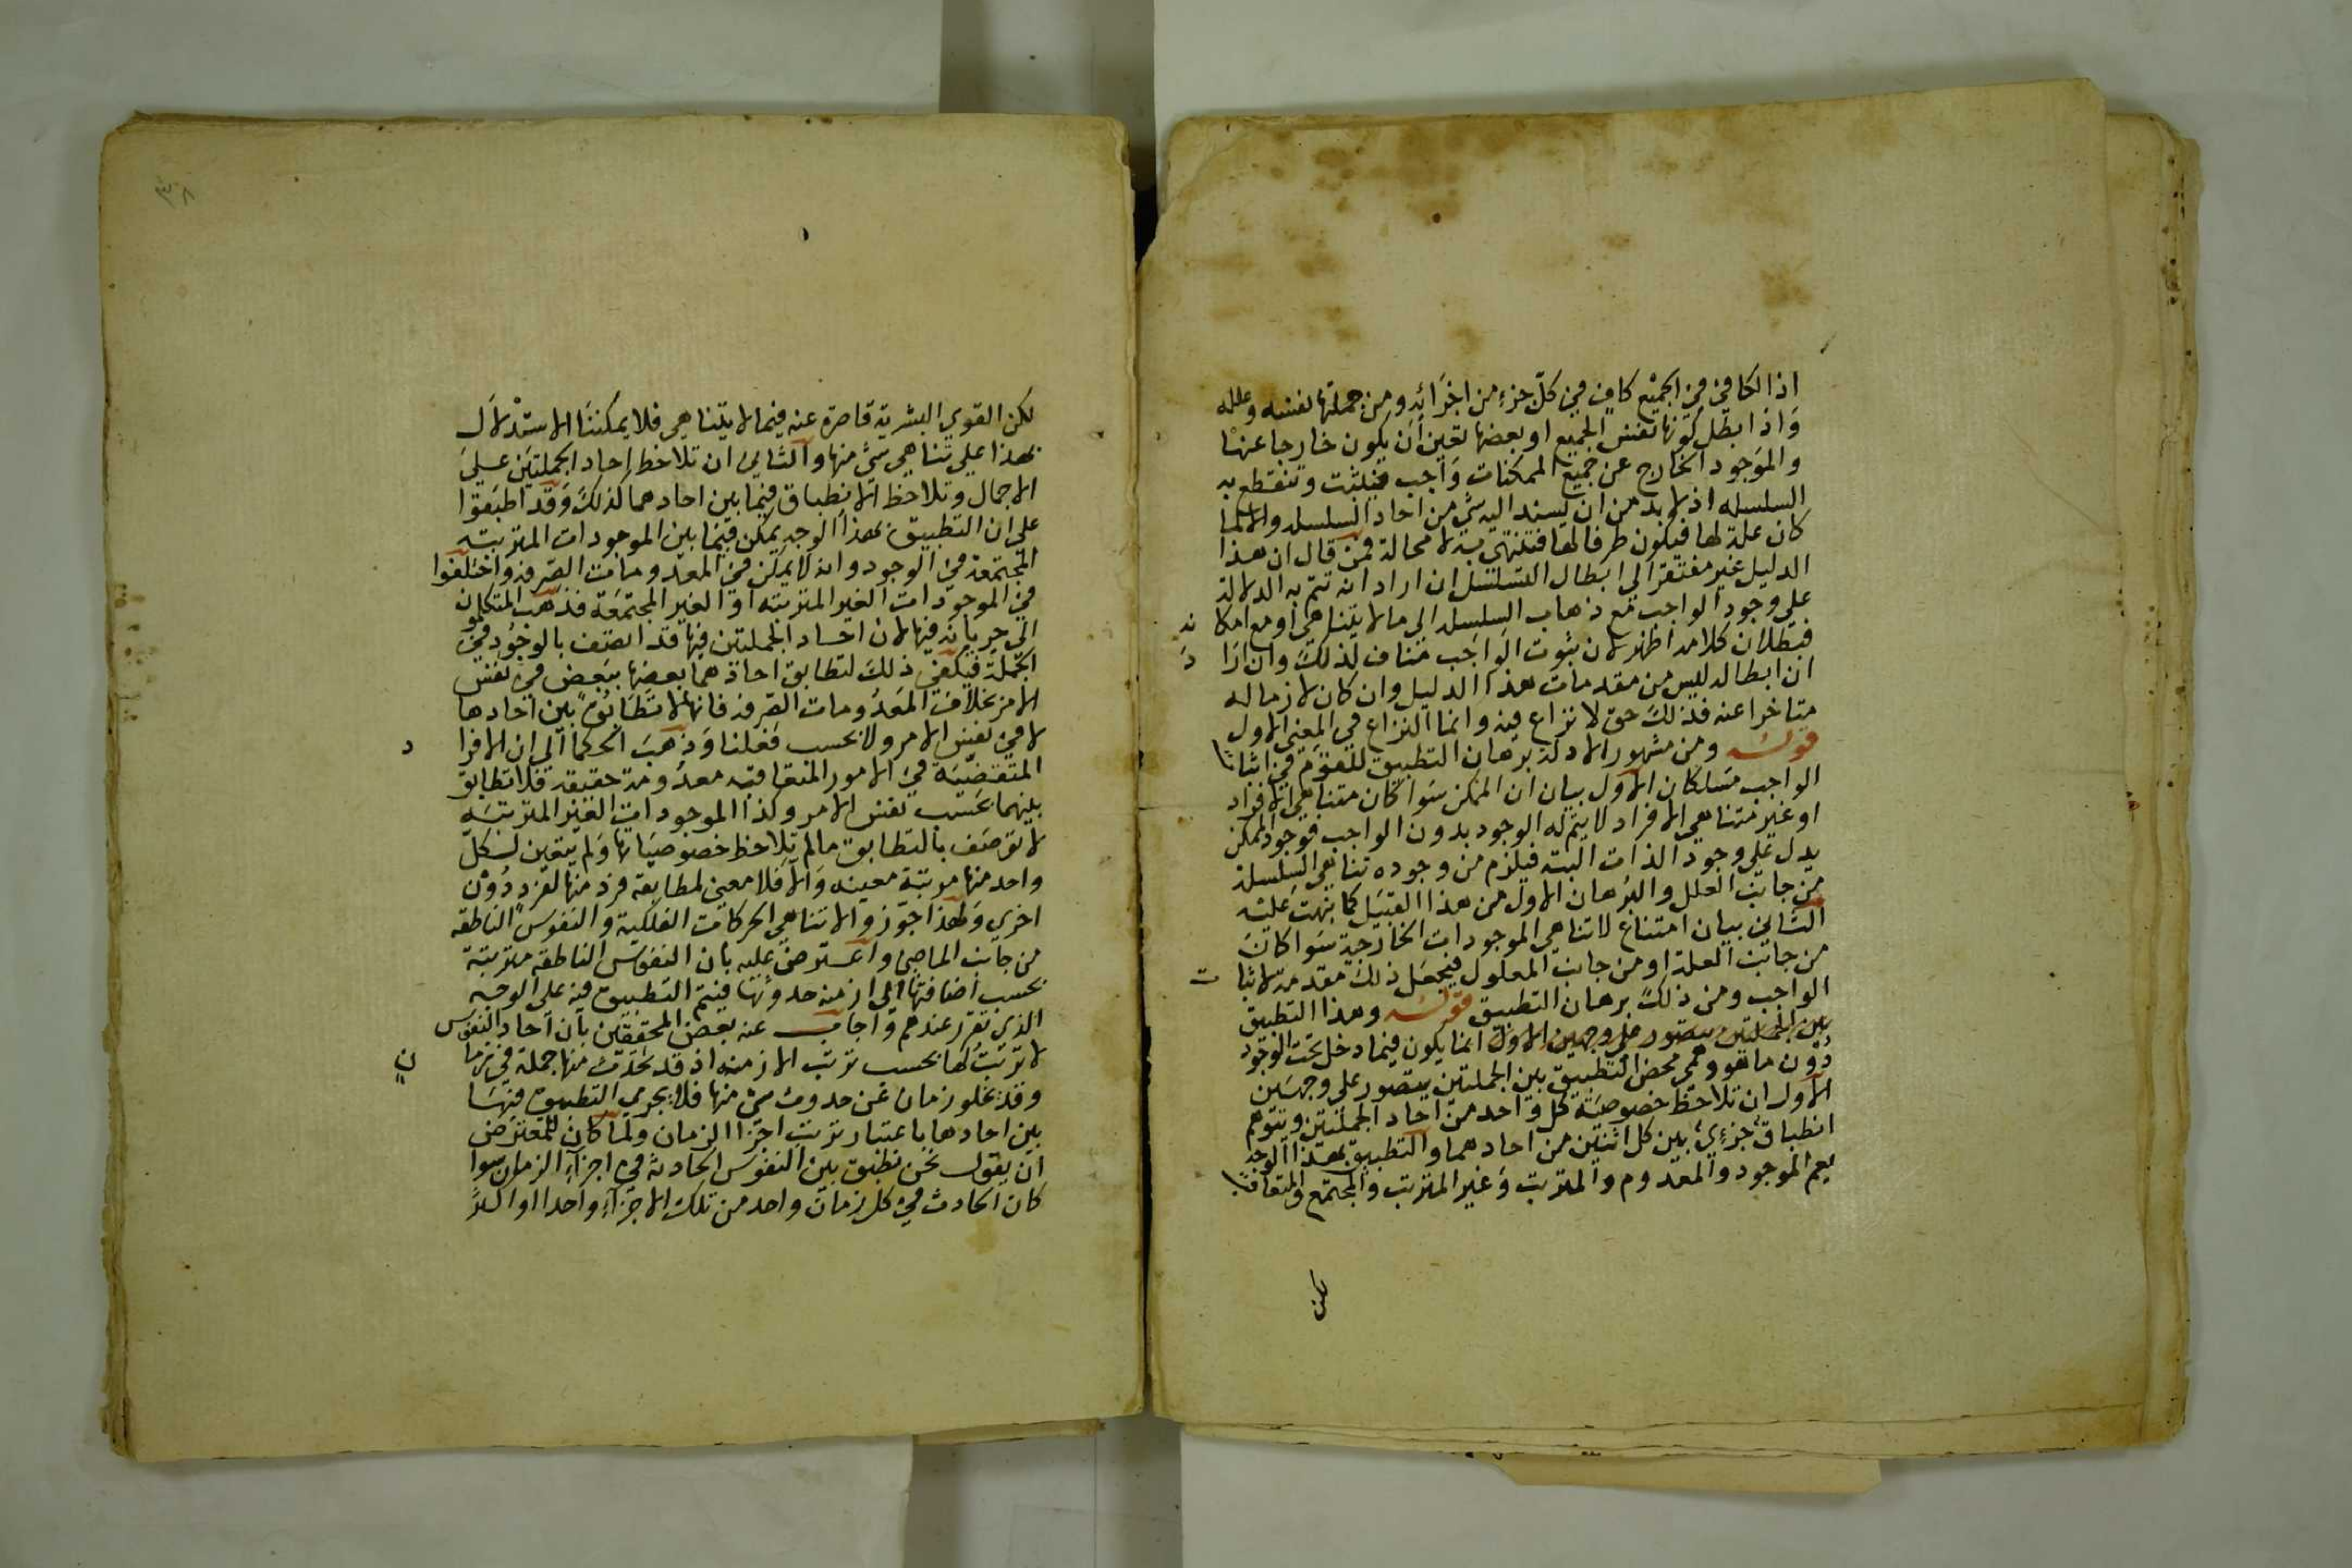 اذ الكافي في الجميع كاف في كل جزء من اجزائه ومن جملتها نفسه وعلله
واذا بطل كونها نفس الجميع او بعضها تعين ان يكون خارجا عنها
والموجود الخارج عن جميع الممكنات واجب فيثبت وتنقطع به
السلسله اذ لا بد من ان يسند اليه شي من احاد السلسله والا لما
كان علة لها فيكون طرفا لها فتنتهي به لا محالة فمن قال ان هذا
الدليل غير مفتقر الي ابطال التسلسل ان اراد انه تتم به الدلالة
علي وجود الواجب مع ذهاب السلسله الي ما لا يتناهي او مع امكانه
فبطلان كلامه اظهر لان ثبوت الواجب مناف لذلك وان اراد
ان ابطاله ليس من مقدمات هذا الدليل وان كان لازما له
متاخرا عنه فذلك حق لا نزاع فيه وانما النزاع في المعني الاول
قوله ومن مشهور الادلة برهان التطبيق للقوم في اثبات
الواجب مسلكان الاول بيان ان الممكن سوا كان متناهي الافراد
او غير متناهي الافراد لا يتم له الوجود بدون الواجب فوجود الممكن
يدل علي وجود الذات البته فيلزم من وجوده تناهي السلسلة
من جانب العلل والبرهان الاول من هذا القبيل كما نبهت عليه
الثاني بيان امتناع لا تناهي الموجودات الخارجية سوا كان
من جانب العلة او من جانب المعلول فيجعل ذلك مقدمة لاثبات
الواجب ومن ذلك برهان التطبيق قوله وهذا التطبيق
بين الجملتين يتصور علي وجهين الاول انما يكون فيما دخل تحت الوجود
دون ما هو وهمي محض التطبيق بين الجملتين يتصور علي وجهين
الاول ان تلاحظ خصوصية كل واحد من احاد الجملتين ويتوهم
انطباق جزءي بين كل اثنين من احادهما والتطبيق بهذا الوجه
يعم الموجود والمعدوم والمترتب وغير المترتب والمجتمع والمتعاقب
لكن
٣٨
لكن القوي البشرية قاصرة عنه فيما لا يتناهي فلا يمكننا الاستدلال
بهذا علي تناهي شي منها والثاني ان تلاحظ احاد الجملتين علي
الاجمال وتلاحظ الانطباق فيما بين احادهما كذلك وقد اطبقوا
علي ان التطبيق بهذا الوجه يمكن فيما بين الموجودات المترتبة
المجتمعة في الوجود وانه لا يمكن في المعدومات الصرفة واختلفوا
في الموجودات الغير المترتبه او الغير المجتمعة فذهب المتكلمون
الي جريانه فيها لان احاد الجملتين فيها قد اتصف بالوجود في
الجملة فيكفي ذلك لتطابق احادهما بعضها ببعض في نفس
الامر بخلاف المعدومات الصرفة فانها لا تطابق بين احادها
لا في نفس الامر ولا بحسب فعلنا وذهب الحكما الي ان الافراد
المتقضية في الامور المتعاقبه معدومة حقيقة فلا تطابق
بينهما بحسب نفس الامر وكذا الموجودات الغير المترتبه
لا توصف بالتطابق ما لم تلاحظ خصوصياتها ولم يتعين لكل
واحد منها مرتبة معينه والا فلا معني لمطابقة فرد منها لفرد دون
اخري ولهذا جوزوا لا تناهي الحركات الفلكية والنفوس الناطقه
من جانب الماضي واعترض عليه بان النفوس الناطقه مترتبة
بحسب اضافتها الي ازمنه حدوثها فيتم التطبيق فيه علي الوجه
الذي تقرر عندهم واجاب عنه بعض المحققين بان احاد النفوس
لا ترتب لها بحسب ترتب الازمنه اذ قد تحدث منها جملة في زمان
وقد يخلو زمان عن حدوث شي منها فلا يجري التطبيق فيها
بين احادها باعتبار ترتب اجزا الزمان ولما كان للمعترض
ان يقول نحن نطبق بين النفوس الحادثة في اجزاء الزمان سوا
كان الحادث في كل زمان واحد من تلك الاجزاء واحدا او اكثر